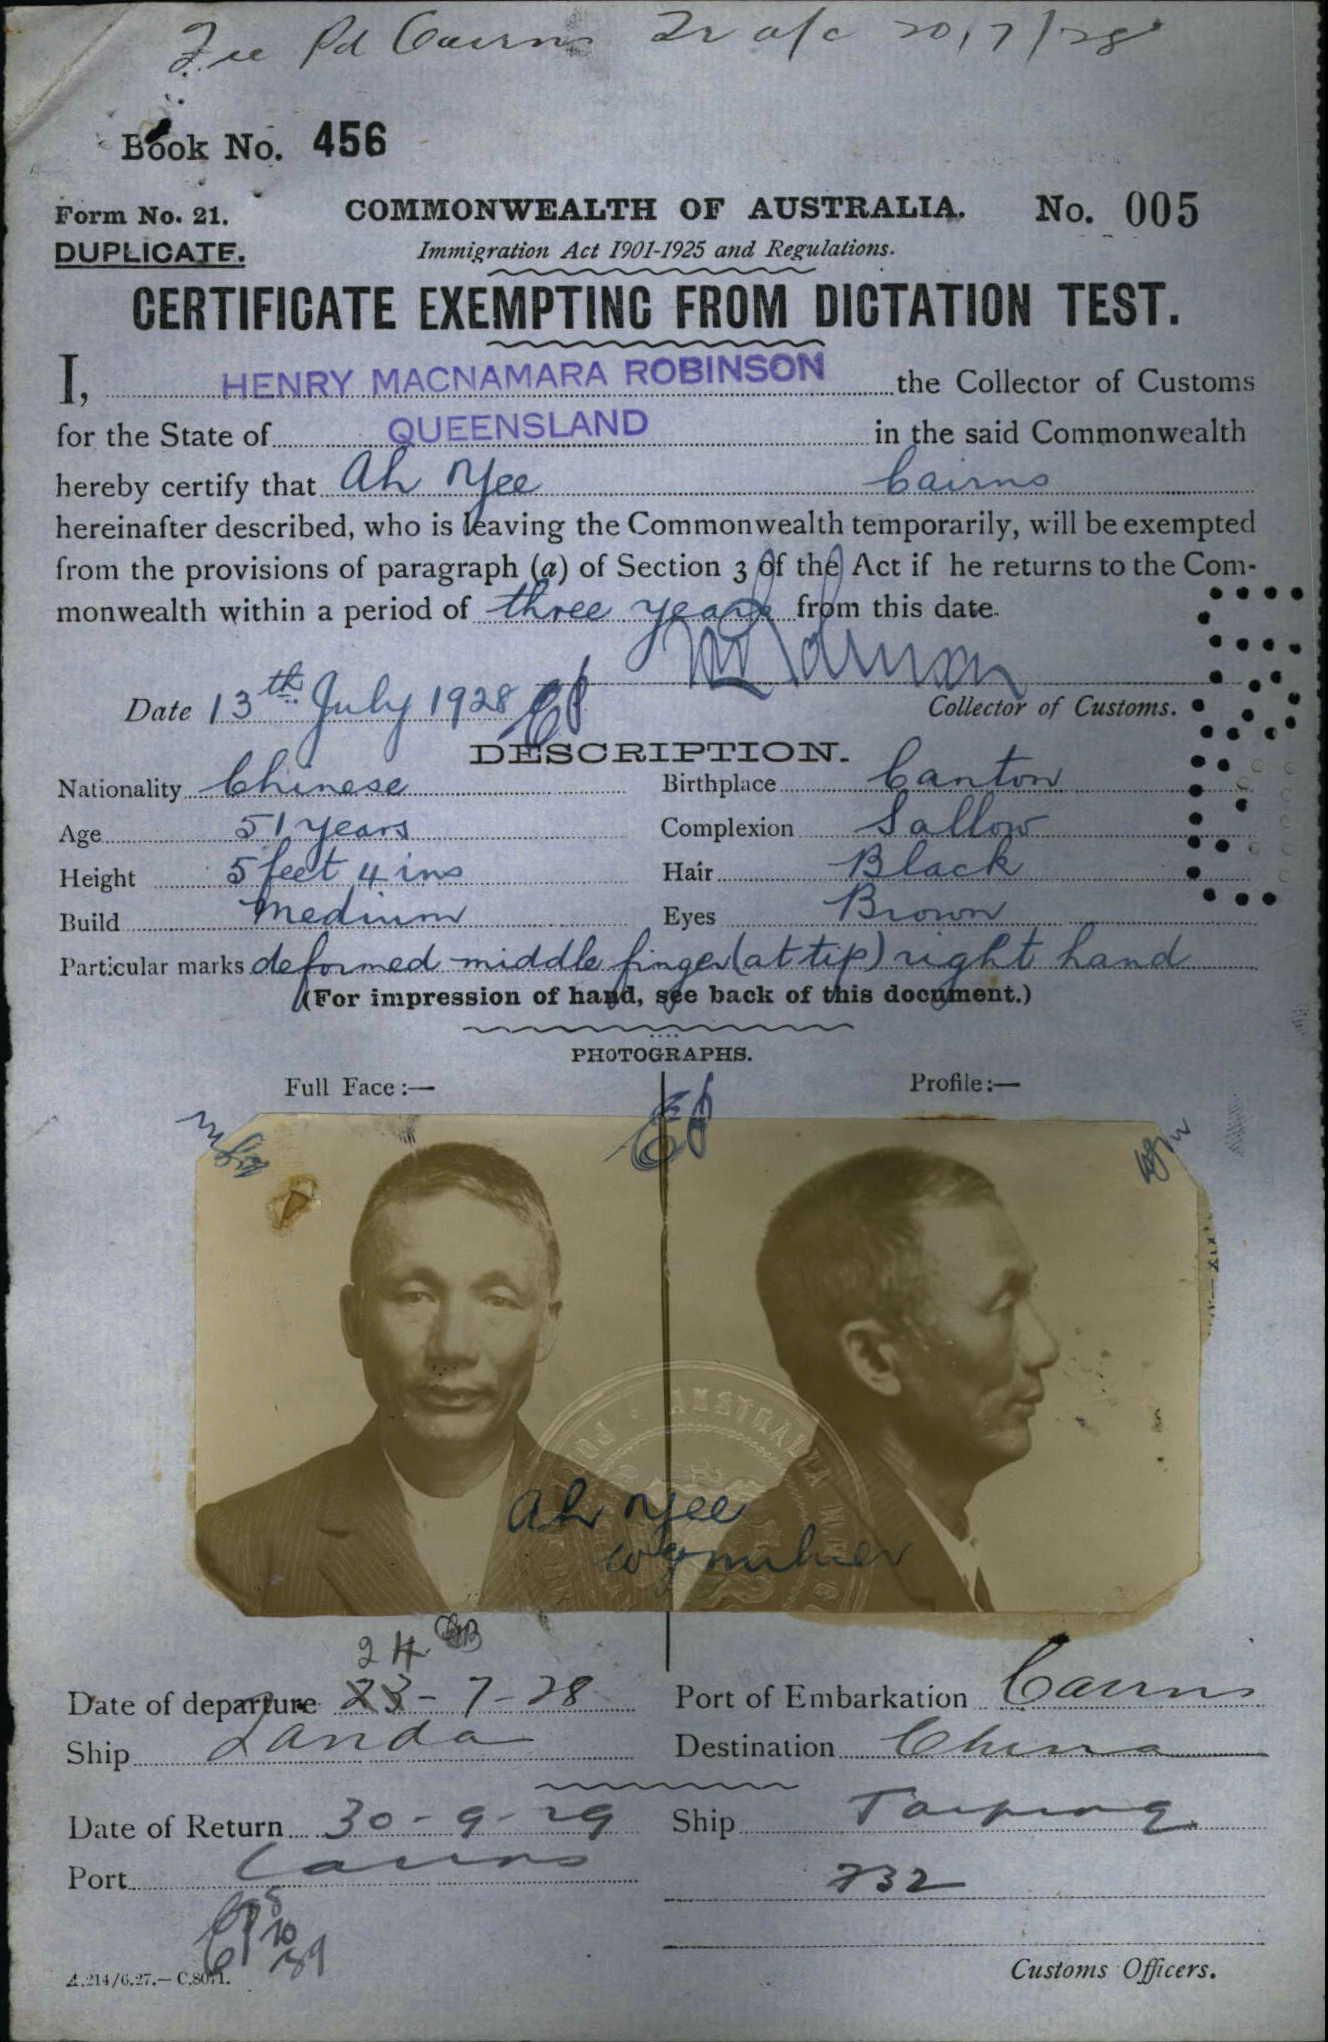 Fee Pd Cairns 20/7/28
Book No. 456
Form No. 21. COMMONWEALTH OF AUSTRALIA. No. 005
DUPLICATE. Immigration Act 1901-1925 and Regulations.
CERTIFICATE EXEMPTING FROM DICTATION TEST.
I, HENRY MACNAMARA ROBINSON the Collector of Customs
for the State of QUEENSLAND in the said Commonwealth
hereby certify that Ah Yee Cairns
hereinafter described, who is leaving the Commonwealth temporarily, will be exempted
from the provisions of paragraph (a) of Section 3 of the Act if he returns to the Com-
monwealth within a period of three years from this date.
Date 13th July 1928 Collector of Customs.
DESCRIPTION.
Nationality Chinese Birthplace Canton
Age 51 years Complexion Sallow
Height 5 feet 4 ins Hair Black
Build Medium Eyes Brown
Particular marks deformed middle finger (at tip) right hand
(For impression of hand, see back of this document.)
PHOTOGRAPHS.
Full Face:— Profile:—
AUSTRALIA
Ah Yee
24
Date of departure 23-7-28 Port of Embarkation Cairns
Ship Tanda Destination China
Date of Return 30-9-29 Ship Taiping
Port Cairns 732
Customs Officers.
A.214/6.27.—C.8071.